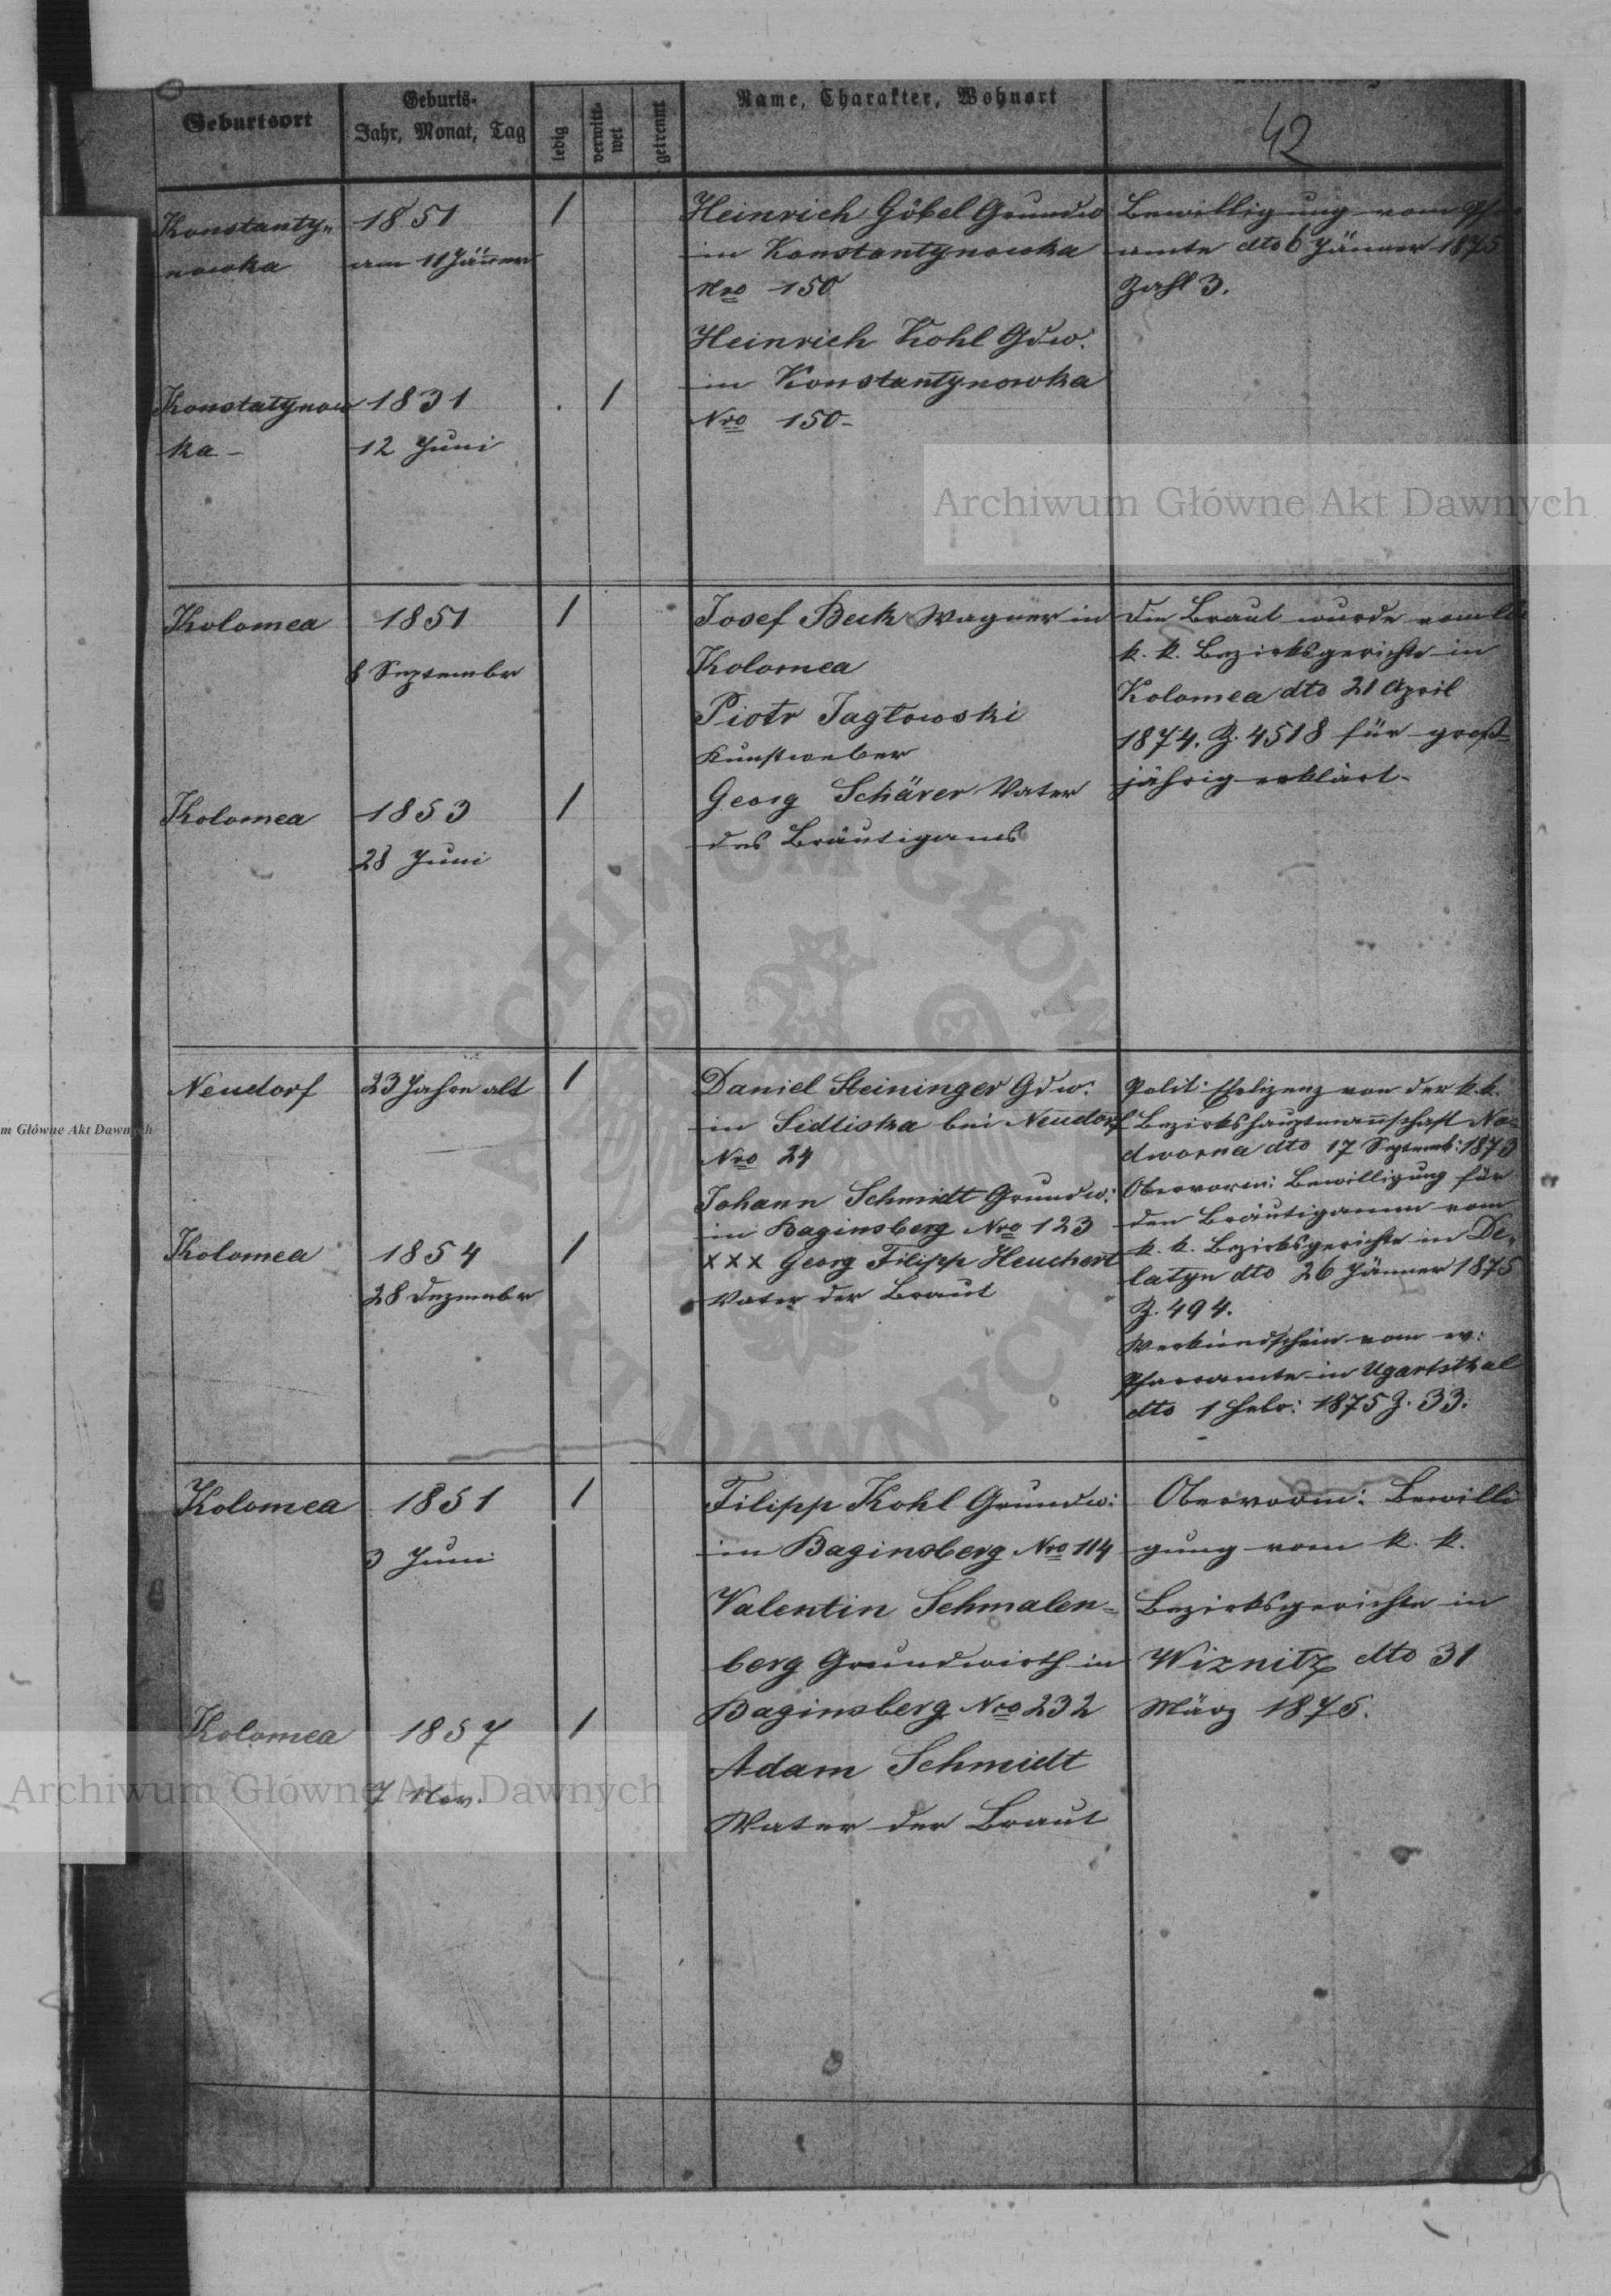 Geburtsort
Geburts-
Jahr, Monat, Tag
ledig
verwitt-
wet
getrennt
Name, Charakter, Wohnort
42
Konstanty„
nowka
1851
am 11 Jänner
/
Heinrich Göbel Grundw
in Konstantynowka
Nro 150
Heinrich Kohl Gdw:
in Konstantynowka
Nro 150-
Bewilligung vom
amte dto 6 Jänner 1875
Zahl 3.
Konstatynow
ka -
1831
12 Juni
/
Kolomea
1851
8 Septembr
/
Josef Beck Wagner in
Kolomea
Piotr Jagłowski
Kunstweber
Georg Schärer Vater
des Bräutigams
Die Braut wurde vom
k. k. Bezirksgerichte in
Kolomea dto 21 April
1874. Z. 4518 für groß-
jährig erklärt-
Kolomea
1853
28 Juni
/
Neudorf
23 Jahre alt
/
Daniel Steininger Gdw:
in Sedliska bei Neudorf
Nro 24
Johann Schmidt Grundw:
in Baginsberg Nro 123
XXX Georg Filipp Heuchert
Vater der Braut
Polit: Ehelizenz von der k. k.
Bezirkshauptmannschaft Na=
dworna dto 17 Septemb: 1873
Obervorm: Bewilligung für
den Bräutigamm vom
k. k. Bezirksgerichte in De„
latyn dto 26 Jänner 1875
Z. 494.
Verkündschein vom ev:
Pfarramte in Ugartsthal
dto 1 Febr: 1875 Z. 33.
Kolomea
1854
28 Dezembr
/
Kolomea
1851
3 Juni
/
Filipp Kohl Grundw:
in Baginsberg Nro 114
Valentin Schmalen=
berg Grundwirth in
Baginsberg Nro 232
Adam Schmidt
Vater der Braut
Obervorm: Bewilli
gung vom k. k.
Bezirksgerichte in
Wiznitz dto 31
März 1875.
Kolomea
1857
7 Nov.
/
Archiwum Główne Akt Dawnych
m Główne Akt Dawnych
Archiwum Główne Akt Dawnych